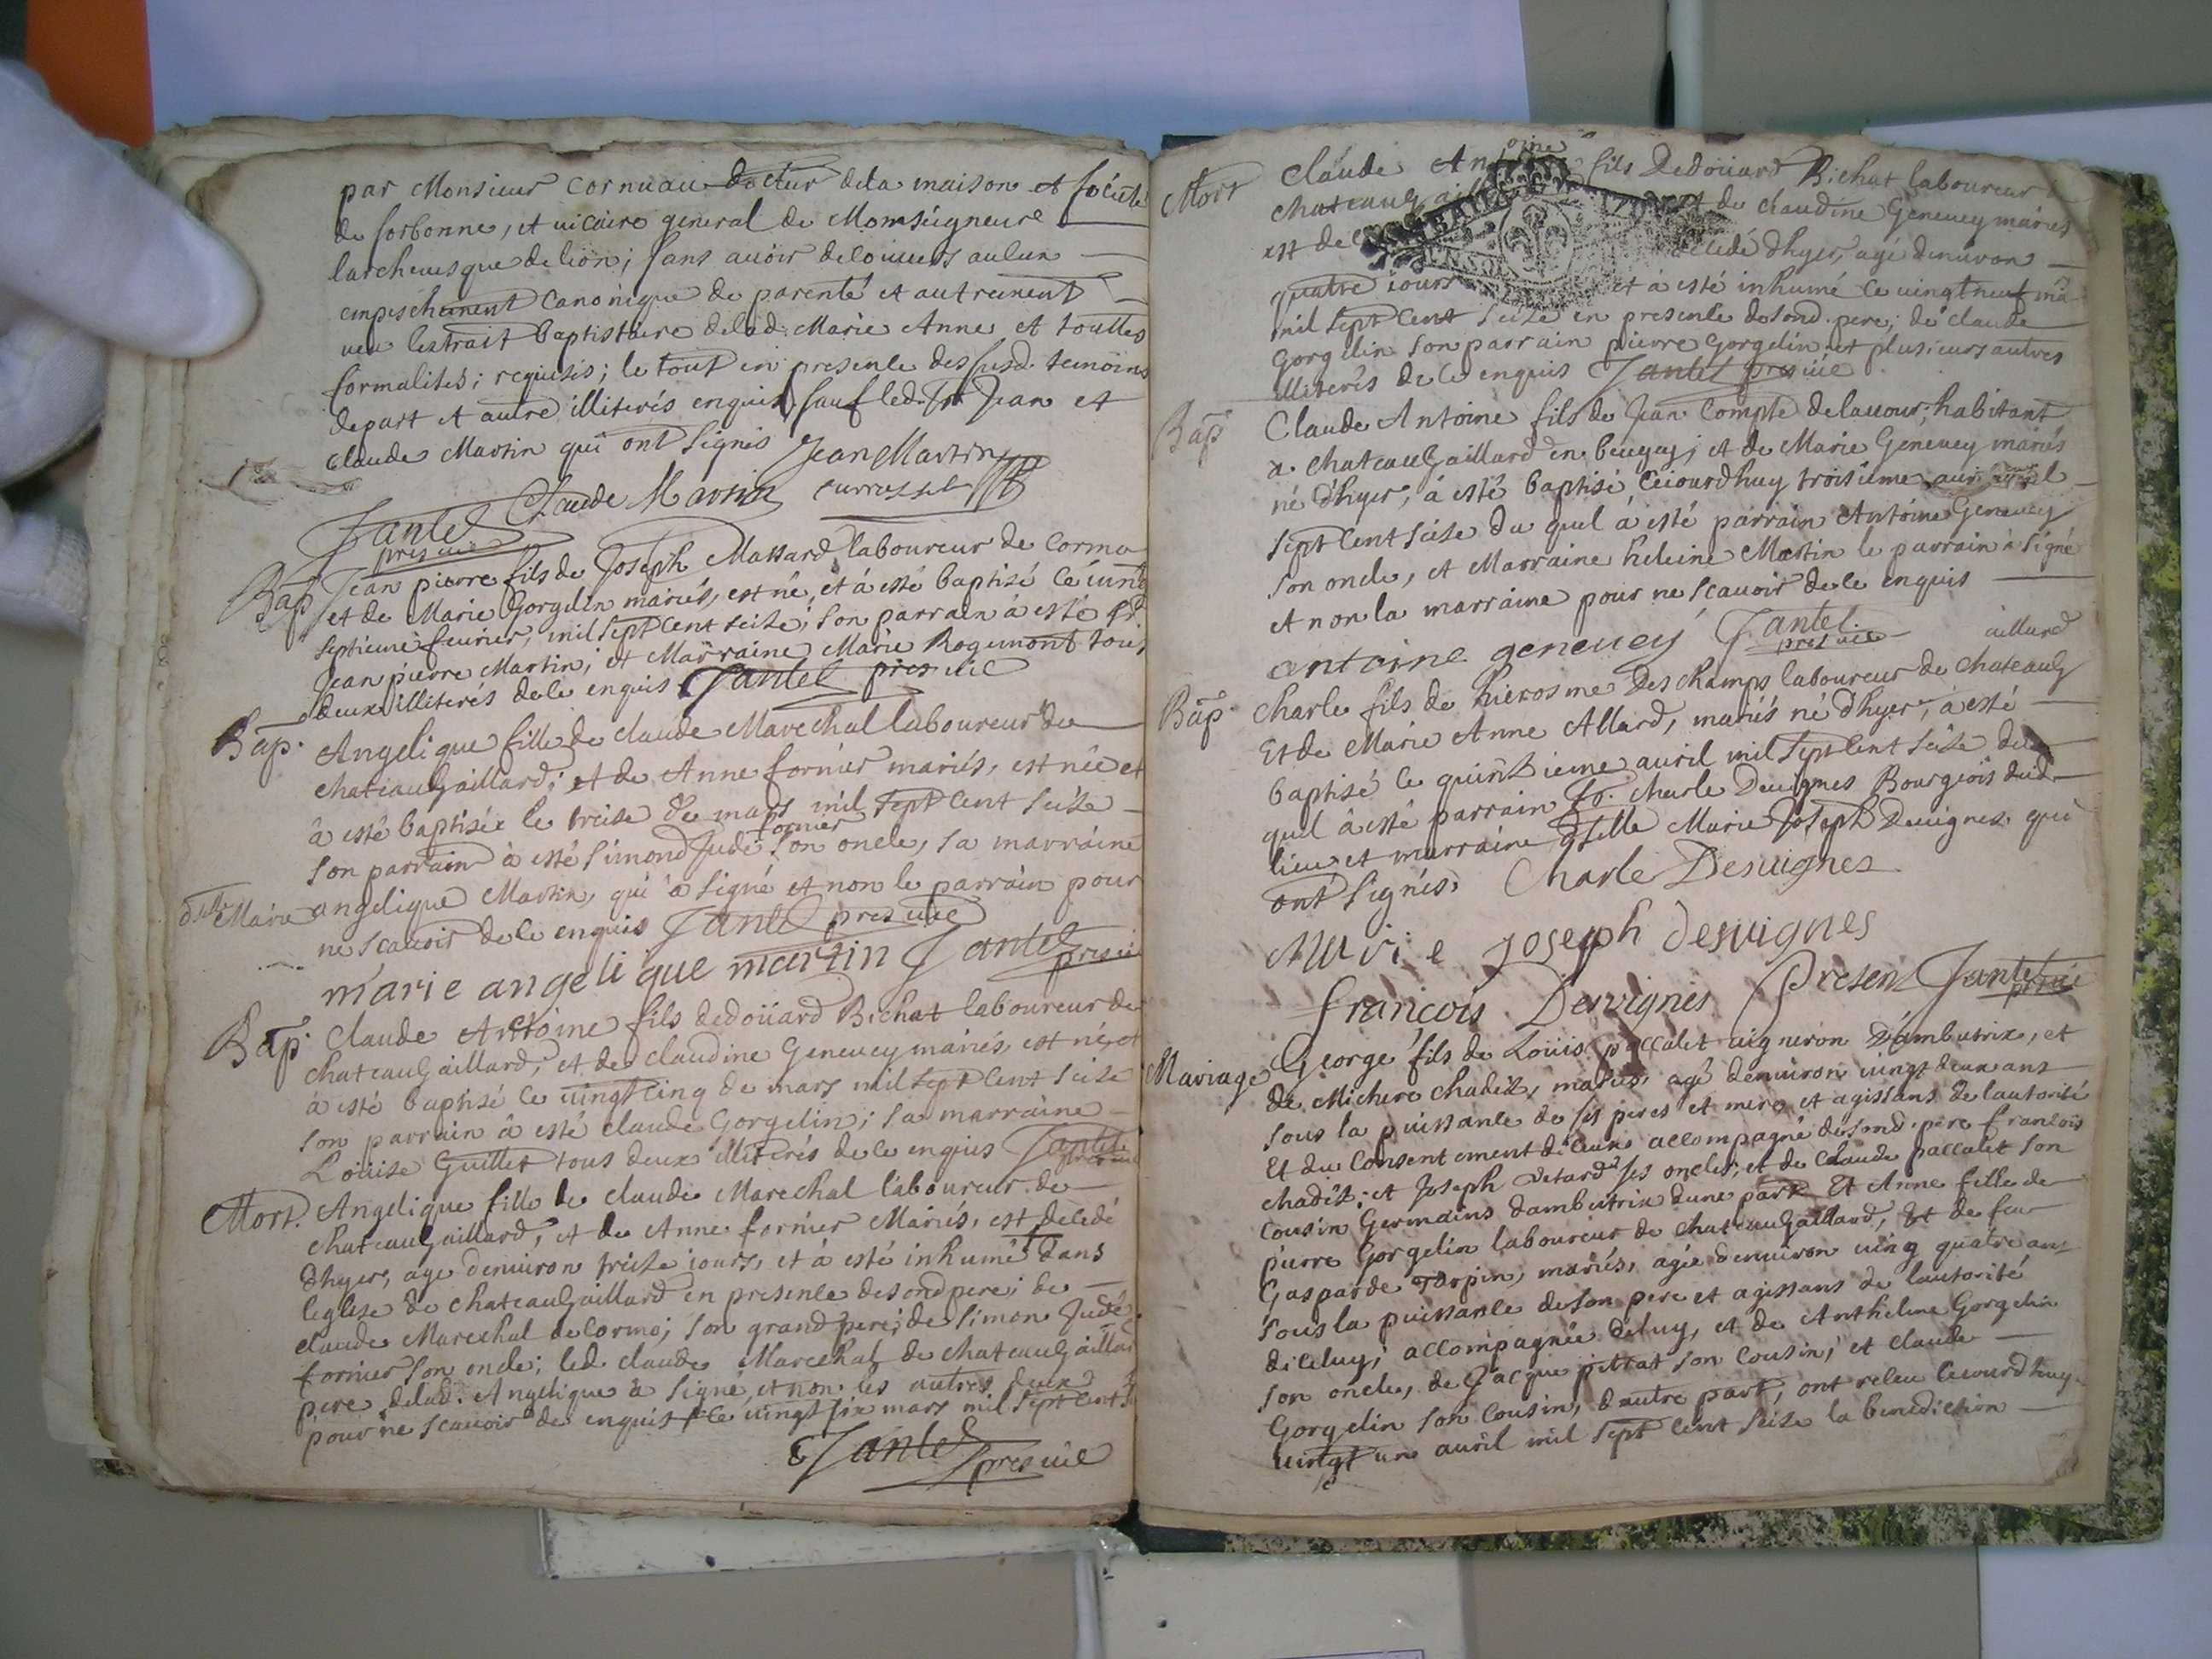 par Monsieur cornuau docteur dela maison et societé
de sorbonne, et uicaire general de Monseigneur
larcheuesque de lion; sans auoir decouuers aulun
empeschement canonique de parenté et autrement
ueu lextrait baptistaire delad. Marie Anne et touttes
formalités; requises; le tout en presence des susd. temoins
depart et autre illiterés enquis, sauf led. sr Jean et
claude Martin qui ont signés Jean Martin
Claude Martin
Jantet
pres uic
Bap Jean pierre fils de Joseph Massard laboureur de Cormo
et de Marie Gorgelin mariés, est né, et à esté baptisé le uint
septieme feurier, mil sept cent seize; son parrain à esté sr.
Jean pierre Martin; et Marraine Marie Rogemont tous
deux illiterés dele enquis Jantet pres uic
Bap. Angelique fille de claude Marechal laboureur de
chateaugaillard; et de Anne fornier mariés, est née et
à esté baptisée le treize de mars mil sept cent seize
fornier
son parrain à esté simond Judé son oncle, sa marraine
dslle Marie angelique Martin, qui a signé et non le parrain pour
ne scauoir dele enquis Jantet pres uic
marie angelique martin Jantet
pres uic
Bap. Claude Antoine fils dedoüard Bichat laboureur de
chateaugaillard; et de claudine Geneuey mariés est né, et
à esté baptisé le uingt cinq de mars mil sept cent seize
son parrain à esté claude Gorgelin; sa marraine
Loüise Guillet tous deux illiterés dele enquis Jantet
pres uic
Mort. Angelique fille de claude Marechal laboureur de
chateaugaillard, et de Anne fornier Mariés, est decedé
dhyer, age denuiron treize iours, et à esté inhumé dans
leglise de chateaugaillard en presence desond pere; de
claude Marechal de Cormo; son grand pere; de Simon Judé
fornier son oncle; led. claude Marechal de chateaugaillard
pere delad. Angelique à signé, et non les autres deux
pour ne scauoir de enquis ce uingt six mars mil sept cent
Jantet
pres uic
Mort Claude Antoine fils Dedoüard Bichat laboureur
chateaug et de claudine Geneuey mariés
est dece decedé dhyer, agé denuiron
quatre iours et à esté inhumé ce uingt neuf
mil sept cent seize en presence de sond. pere; de claude
Gorgelin son parrain pierre Gorgelin et plusieurs autres
illiterés dele enquis Jantet pres uic
Bap Claude Antoine fils de Jean Compte delauour; habitant
a. chateaugaillard en beugey; et de Marie Geneuey mariés
né dhyer, à esté baptisé ceiourdhuy troisieme auril
sept cent seize du quel à esté parrain Antoine Geneuey
son oncle, et Marraine heleine Martin le parrain à signé
et non la marraine pour ne scauoir dele enquis
antoine geneuey Jantet
pres uic
aillard
Bap. Charle fils de hierosme Deschamps laboureur de chateaug
Et de Marie Anne Allard, mariés né dhyer, à esté
baptisé le quinzieme auril mil sept cent seize du
quel à esté parrain sr. Charle Deuignes Bourgeois dud.
lieu, et marraine dslle Marie Joseph Deuignes qui
ont signés. Charle Desuignes
Marie Joseph desuignes
francois Desvignes present Jantet
pres uic
Mariage George fils de Loüis paccalet uigneron dambutrix, et
de Michere chadet, mariés, agé denuiron uingt deux ans
sous la puissance de ses peres et mere et agissans de lautorité
Et du Consentement diceux accompagné desond. pere francois
chadet; et Joseph ses oncles; et de Claude paccalet son
Cousin Germains dambutrix dune part Et Anne fille de
pierre Gorgelin laboureur de chateaugaillard, Et de feue
Gasparde mariés, agée denuiron uing quatre ans
sous la puissance de son pere et agissans de lautorité
diceluy, accompagnée deluy, et de Anthelme Gorgelin
son oncle, de Jacque pittat son Cousin, et claude
Gorgelin son Cousin, dautre part, ont receu ceiourdhuy
uingt un auril mil sept cent seize la benediction